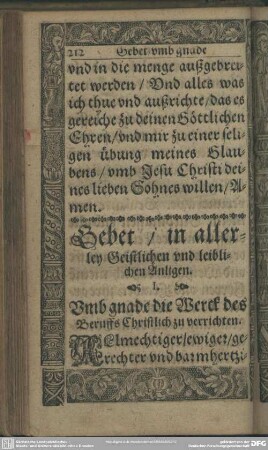 212 Gebet vmb gnade
vnd in die menge außgebrei
tet werden / Vnd alles was
ich thue vnd außrichte / das es
gereiche zu deinen Göttlichen
Ehren / vnd mir zu einer seli
gen übung meines Glau
bens / vmb Jesu Christi dei
nes lieben Sohnes willen / A
men.
Gebet / in aller
ley Geistlichen vnd leibli
chen Anligen.
I.
Vmb gnade die Werck des
Beruffs Christlich zu verrichten.
Almechtiger / ewiger / ge
rechter vnd barmhertzi